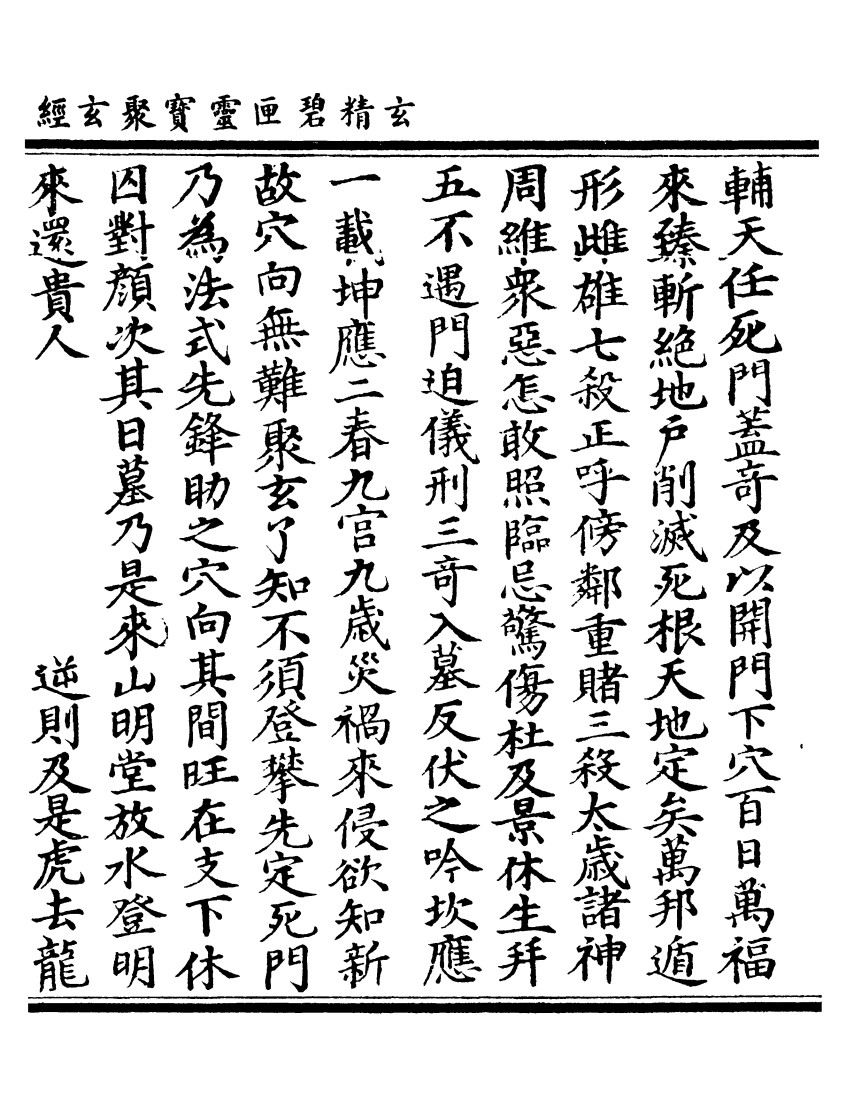 玄精碧匣靈寶聚玄經
輔天任死門蓋竒及以開門下穴百日萬福
來臻斬絕地戶削滅死根天地定矣萬邦遁
形雌雄七殺正呼傍鄰重賭三殺太歲諸神
周維衆惡怎敢照臨忌驚傷杜及景休生拜
五不遇門迫儀刑三竒入墓反伏之吟坎應
一載坤應二春九宮九歲災禍來侵欲知新
故穴向無難聚玄了知不須登攀先定死門
乃為法式先鋒助之穴向其間旺在支下休
囚對顏次其日墓乃是來山明堂放水登明
來還貴人 逆則及是虎去龍